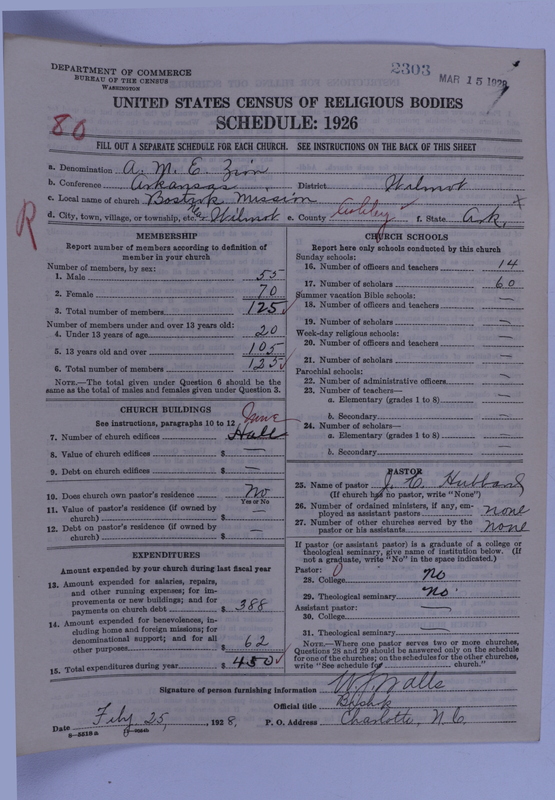 2303
DEPARTMENT OF COMMERCE
BUREAU OF THE CENSUS
WASHINGTON
MAR 15 1928
UNITED STATES CENSUS OF RELIGIOUS BODIES
SCHEDULE: 1926
80
FILL OUT A SEPARATE SCHEDULE FOR EACH CHURCH. SEE INSTRUCTIONS ON THE BACK OF THIS SHEET
a. Denomination A. M. E. Zion
b. Conference Arkansas District Wilmot
c. Local name of church Mission x
d. City, town, village, or township, etc. Wilmot e. County f. State Ark.
R
MEMBERSHIP
Report number of members according to definition of
member in your church
Number of members, by sex:
1. Male 55
2. Female 70
3. Total number of members 125 ✓
Number of members under and over 13 years old:
4. Under 13 years of age 20
5. 13 years old and over 105
6. Total number of members 125 ✓
NOTE.—The total given under Question 6 should be
the same as the total of males and females given under Question 3.
CHURCH BUILDINGS
See instructions, paragraphs 10 to 12
7. Number of church edifices Hall
8. Value of church edifices $ —
9. Debt on church edifices $ —
10. Does church own pastor's residence No
Yes or No
11. Value of pastor's residence (if owned by
church) $ —
12. Debt on pastor's residence (if owned by
church) $ —
EXPENDITURES
Amount expended by your church during last fiscal year
13. Amount expended for salaries, repairs,
and other running expenses; for im-
provements or new buildings; and for
payments on church debt $ 388
14. Amount expended for benevolences, in-
cluding home and foreign missions; for
denominational support; and for all
other purposes $ 62
15. Total expenditures during year $ 450 ✓
CHURCH SCHOOLS
Report here only schools conducted by this church
Sunday schools:
16. Number of officers and teachers 14
17. Number of scholars 60
Summer vacation Bible schools:
18. Number of officers and teachers —
19. Number of scholars —
Week-day religious schools:
20. Number of officers and teachers —
21. Number of scholars —
Parochial schools:
22. Number of administrative officers —
23. Number of teachers—
a. Elementary (grades 1 to 8) —
b. Secondary —
24. Number of scholars—
a. Elementary (grades 1 to 8) —
b. Secondary —
PASTOR
25. Name of pastor J. C. Hubbard
(If church has no pastor, write "None")
26. Number of ordained ministers, if any, em-
ployed as assistant pastors none
27. Number of other churches served by the
pastor or his assistants none
If pastor (or assistant pastor) is a graduate of a college or
theological seminary, give name of institution below. (If
not a graduate, write "No" in the space indicated.)
Pastor:
28. College No
29. Theological seminary No
Assistant pastor:
30. College —
31. Theological seminary —
NOTE.—Where one pastor serves two or more churches,
Questions 28 and 29 should be answered only on the schedule
for one of the churches; on the schedules for the other churches,
write "See schedule for church."
Signature of person furnishing information W J Walls
Official title Bishop
Date Feby 25, 1928. P. O. Address Charlotte, N. C.
8—5518 a